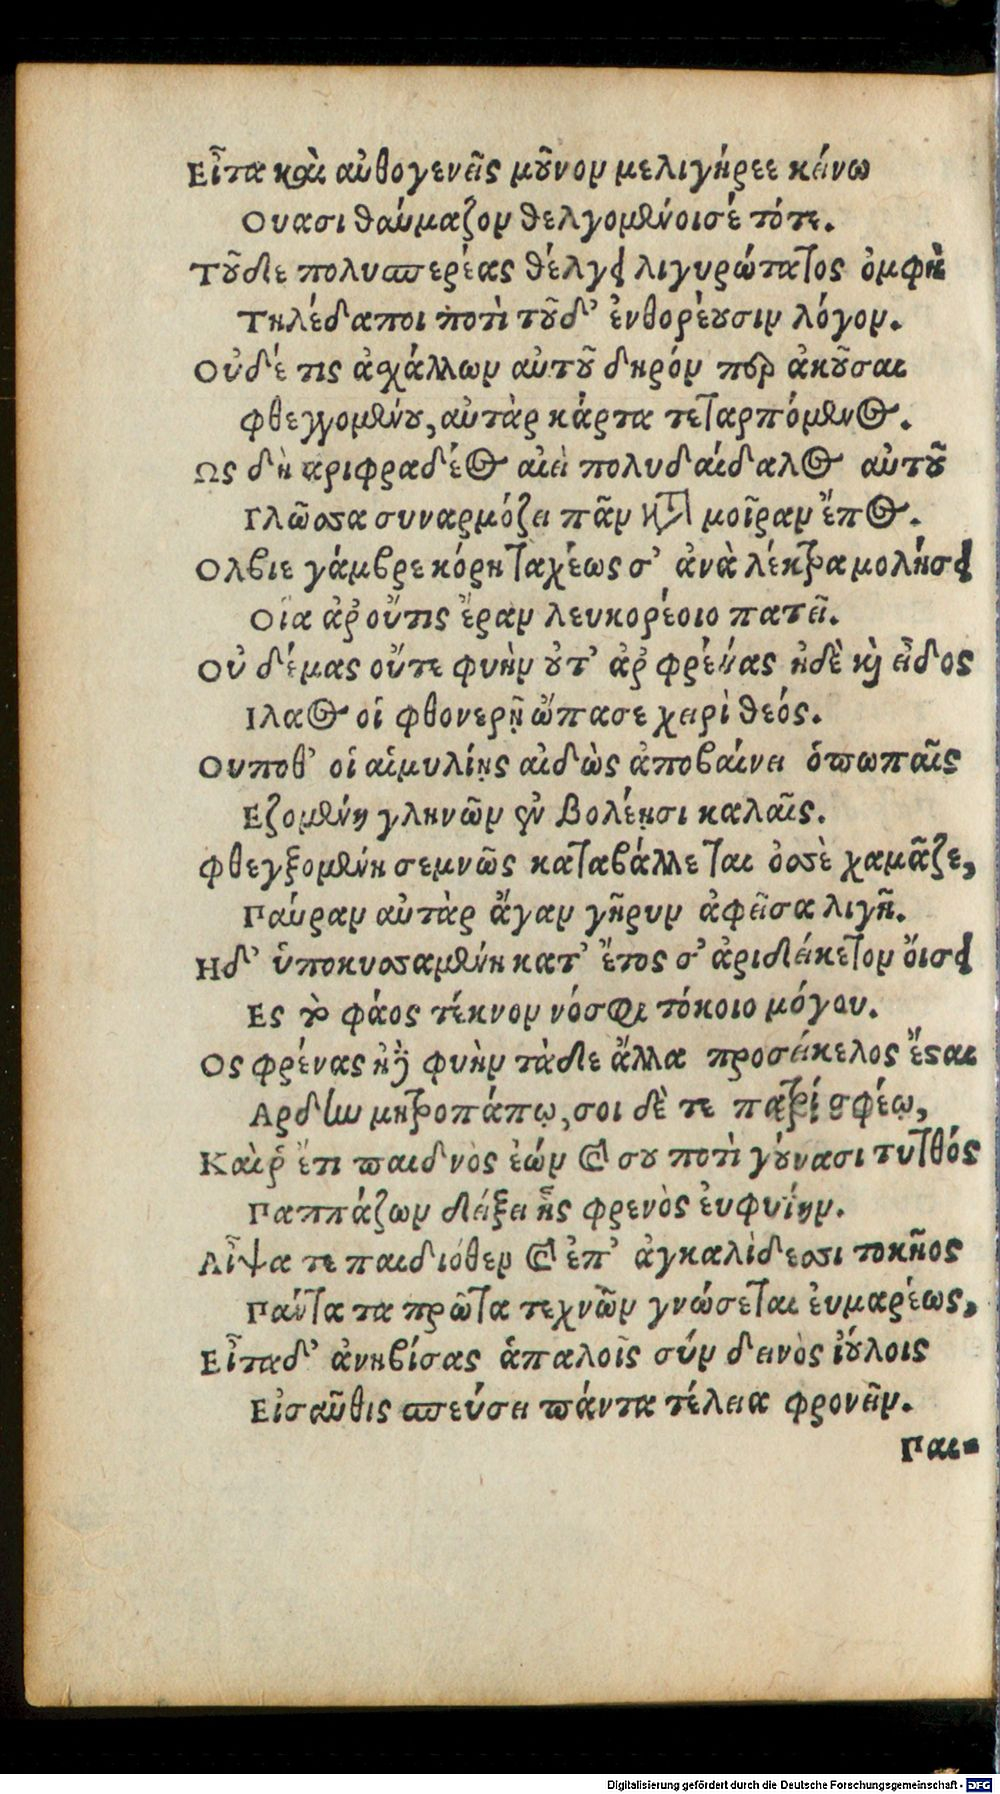 Εἶτα καὶ αὐθογενεῖς μοῦνον μελιγήρεε κείνω
Ουασι θαύμαζον θελγομένοισέ τότε.
Τοῦδε πολυσπερέας θέλγει λιγυρώτατος ὀμφὴ
Τηλέδαποι ποτὶ τοῦδ' ἐνθορέουσιν λόγον.
Οὐδέ τις ἀσχάλλων αὐτοῦ δηρόν περ ἀκοῦσαι
φθεγγομένου, αὐτὰρ κάρτα τεταρπόμενος.
Ως δὴ αριφραδέος αἰεὶ πολυδαίδαλος αὐτοῦ
Γλῶσσα συναρμόζει πᾶν κατὰ μοῖραν ἔπος.
Ολβιε γάμβρε κόρη ταχέως σ' ἀνὰ λέκτρα μολήσει
Οἵα ἀρ οὔτις ἔραν λευκορέοιο πατεῖ.
Οὐ δέμας οὔτε φυὴν οὐτ' ἀρ φρένας ἠδὲ καὶ εἶδος
Ιλαος οἱ φθονερῇ ὤπασε χειρὶ θεός.
Ουποθ' οἱ αἱμυλίης αἰδὼς ἀποβαίνει ὀπωπαῖς
Εζομένη γληνῶν σὺν βολέῃσι καλαῖς.
φθεγξομένη σεμνῶς καταβάλλεται ὀσσὲ χαμᾶζε,
Παύραν αὐτὰρ ἄγαν γῆρυν ἀφεῖσα λιγῆ.
Ηδ' ὑποκυσσαμένη κατ' ἔτος σ' ἀριδείκετον ὄισει
Ες τὸ φάος τέκνον νόσφι τόκοιο μόγου.
Ος φρένας ἠὴ φυὴν τὰδε ἄλλα προσείκελος ἔσται
Αρδίω μητροπάπῳ, σοι δὲ τε πατρί σφέῳ,
Καὶ ῥ' ἔτι παιδνὸς ἐών ἐπὶ σου ποτὶ γούνασι τυτθός
Παππάζων δείξει ἧς φρενὸς ἐυφυΐην.
Αἶψα τε παιδιόθεν ἐπὶ ἐπ' ἀγκαλίδεσσι τοκῆος
Πάντα τα πρῶτα τεχνῶν γνώσεται ἐυμαρέως,
Εἶτα δ' ἀνηβίσας ἁπαλοῖς σύν δεινὸς ἰούλοις
Εἰσαῦθις σπεύσει πάντα τέλεια φρονεῖν.
Παι-
Digitalisierung gefördert durch die Deutsche Forschungsgemeinschaft - DFG